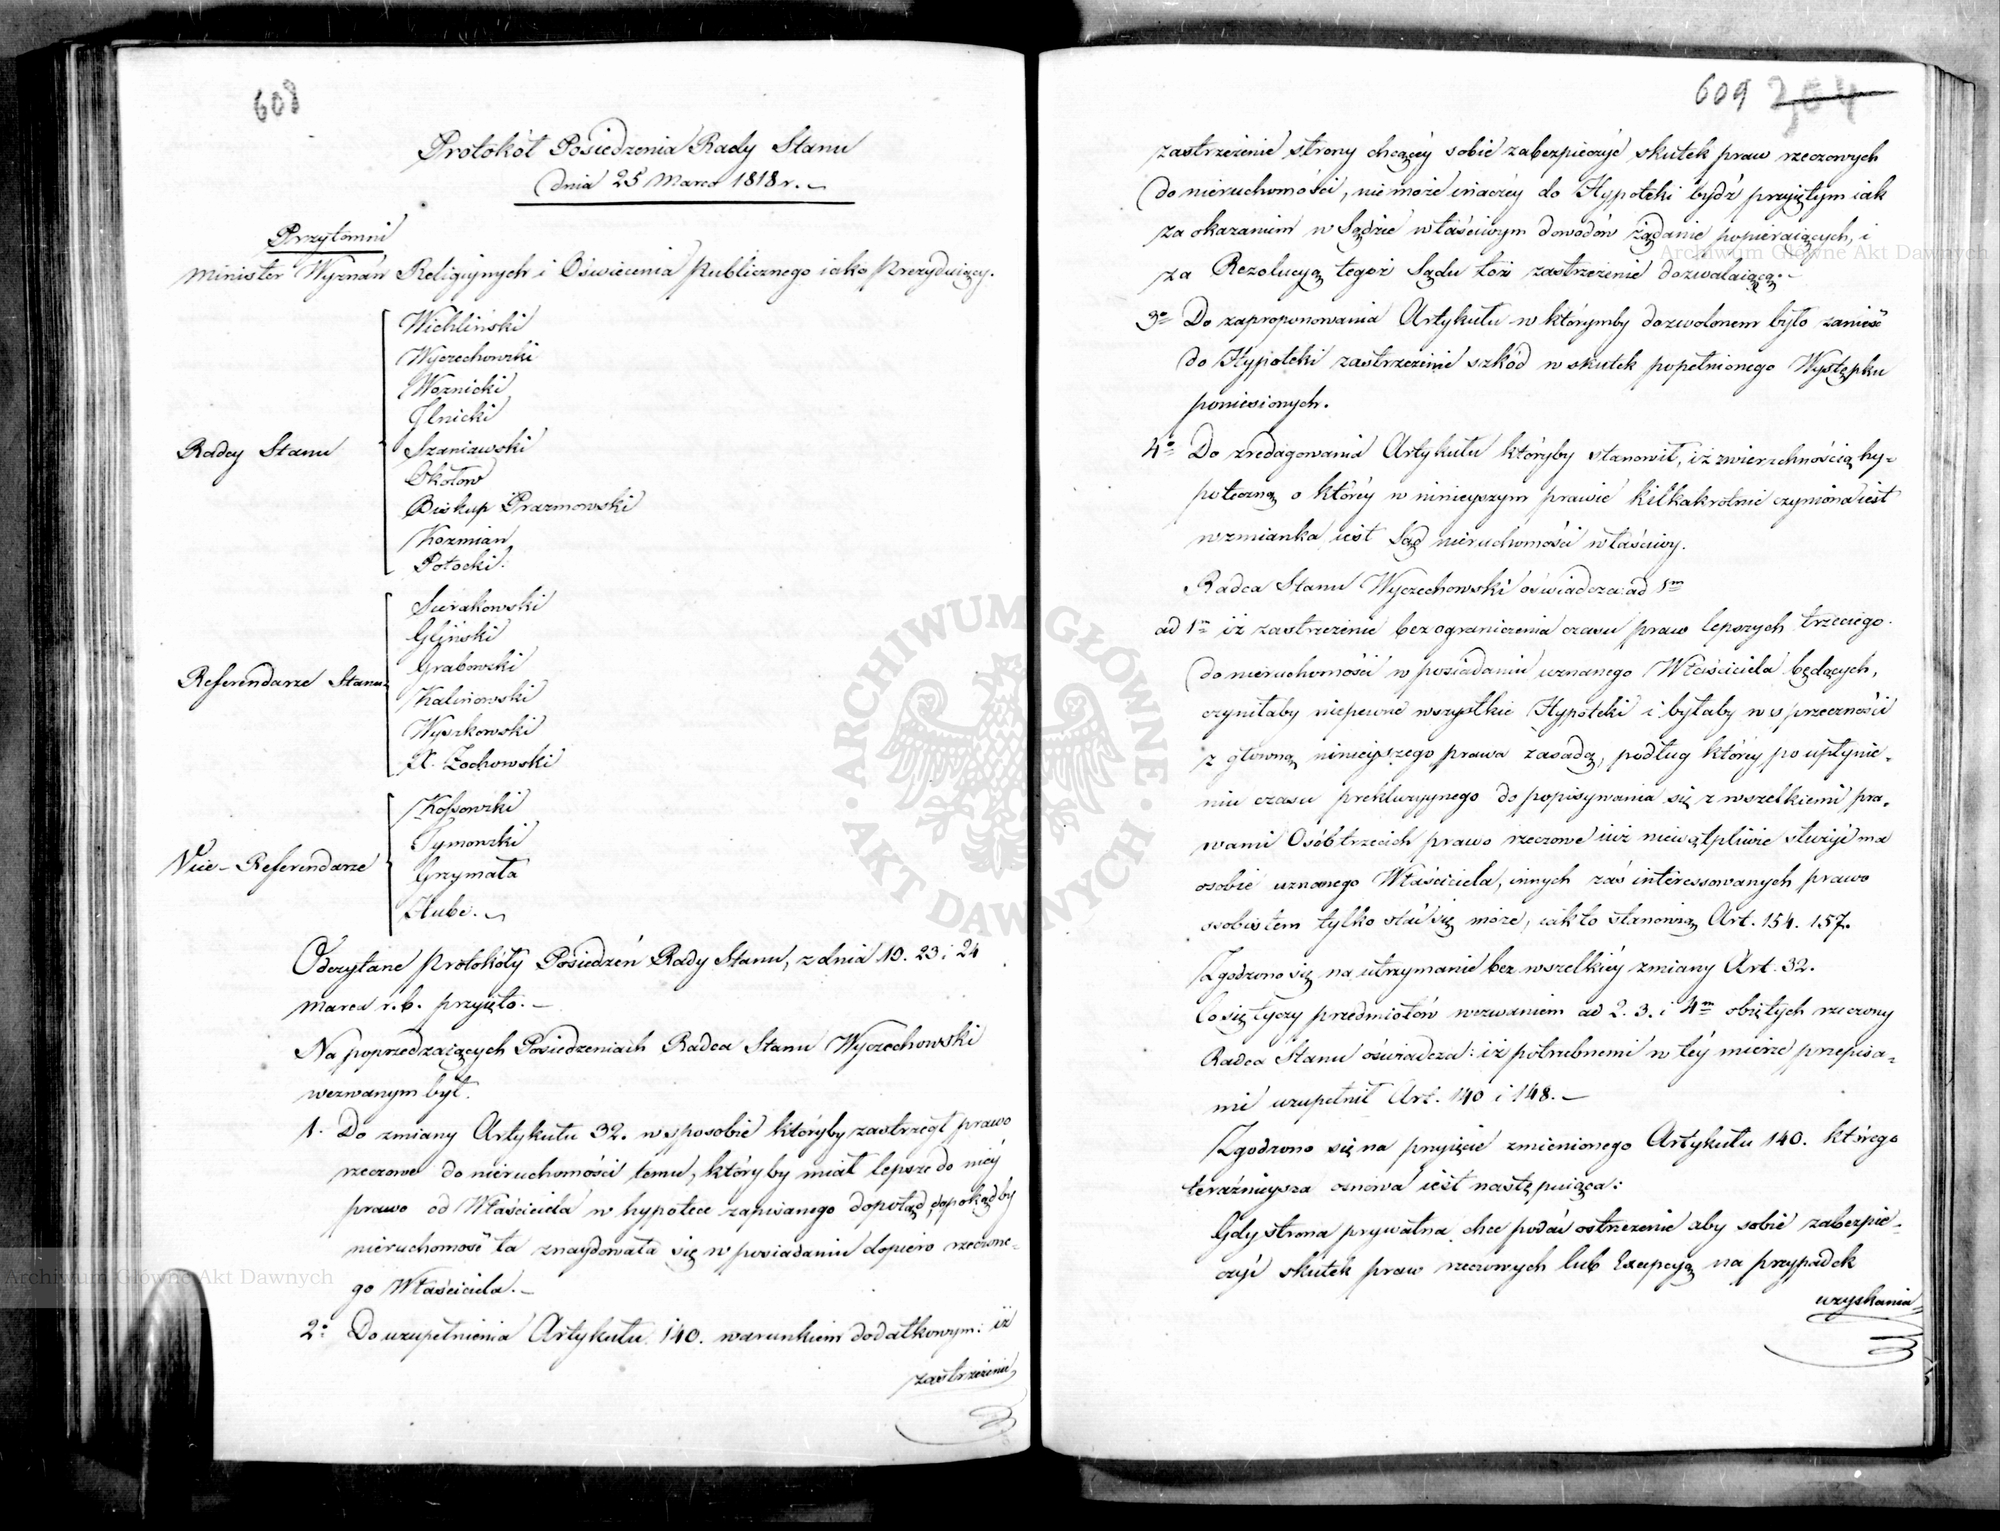 608
Protokół Posiedzenia Rady Stanu
dnia 25 Marca 1818 r. –
Przytomni
Minister Wyznań Religiynych i Oświecenia Publicznego iako Prezyduiący.
Radcy Stanu
Wichliński
Wyczechowski
Woznicki
Ilnicki
Szaniawski
Okołow
Biskup Prazmowski
Kozmian
Potocki.
Referendarze Stanu
Sierakowski
Gliński
Grabowski
Kalinowski
Wyszkowski
X. Żochowski
Vice-Referendarze
Kossowski
Tymowski
Grzymała
Hube. –
Odczytane protokóły Posiedzeń Rady Stanu, z dnia 19. 23 i 24
Marca r. b. przyięto. –
Na poprzedzaiących Posiedzeniach Radca Stanu Wyczechowski
wezwanym był.
1. Do zmiany Artykułu 32. w sposobie któryby zastrzegł prawo
rzeczowe do nieruchomości temu, któryby miał lepsze do niéy
prawo od Właściciela w hypotece zapisanego dopotąd, dopokąd by
nieruchomość ta znaydowała się w posiadaniu dopiero rzeczone-
go Właściciela. –
2o Do uzupełnienia Artykułu 140. warunkiem dodatkowym: iż
zastrzeżenie
609 304
zastrzeżenie strony chcącéy sobie zabezpieczyć skutek praw rzeczowych
do nieruchomości, nie może inaczéy do Hypoteki bydź przyiętym iak
za okazaniem w Sądzie właściwym dowodów żądanie popieraiących, i
za Rezolucyą tegoż Sądu toż zastrzeżenie dozwalaiącą. –
3o Do zaproponowania Artykułu w którymby dozwolonem było zanieść
do Hypoteki zastrzeżenie szkód w skutek popełnionego Występku
poniesionych.
4o Do zredagowania Artykułu któryby stanowił, iż zwierzchnością hy-
poteczną o któréy w ninieyszym prawie kilkakrotnie czyniona iest
wzmianka iest Sąd nieruchomości właściwy.
Radca Stanu Wyczechowski oświadcza: ad 1m
ad 1m iż zastrzeżenie bez ograniczenia czasu praw lepszych trzeciego
do nieruchomości w posiadaniu uznanego Właściciela będących,
czyniłaby niepewne wszystkie Hypoteki i byłaby w sprzeczności
z główną ninieyszego prawa zasadą, podług któréy po upłynie-
niu czasu prekluzyynego do popisywania się z wszelkiemi pra-
wami Osób trzecich prawo rzeczowe iuż niewątpliwie służyć ma
osobie uznanego Właściciela, innych zaś interessowanych prawo
osobistem tylko stać się może, iak to stanowią Art. 154. 157.
Zgodzono się na utrzymanie bez wszelkiéy zmiany Art. 32.
Co się tyczy przedmiotów wezwaniem ad 2. 3. i 4m obiętych rzeczony
Radca Stanu oświadcza: iż potrzebnemi w téy mierze przepisa-
mi uzupełnił Art. 140 i 148. –
Zgodzono się na przyięcie zmienionego Artykułu 140. którego
teraźnieysza osnowa iest następuiąca:
Gdy strona prywatna chce podać ostrzeżenie aby sobie zabezpie-
czyć skutek praw rzeczowych lub Excepcyą na przypadek
uzyskania
Archiwum Główne Akt Dawnych
Archiwum Główne Akt Dawnych
ARCHIWUM GŁÓWNE AKT DAWNYCH